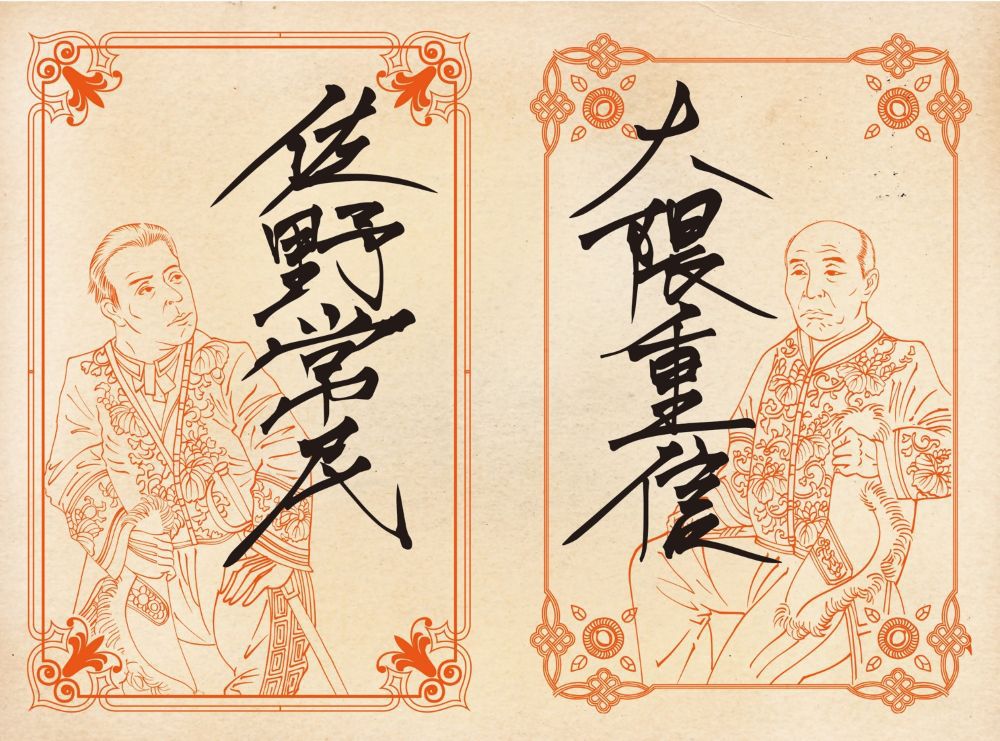 大隈重信
佐野常民